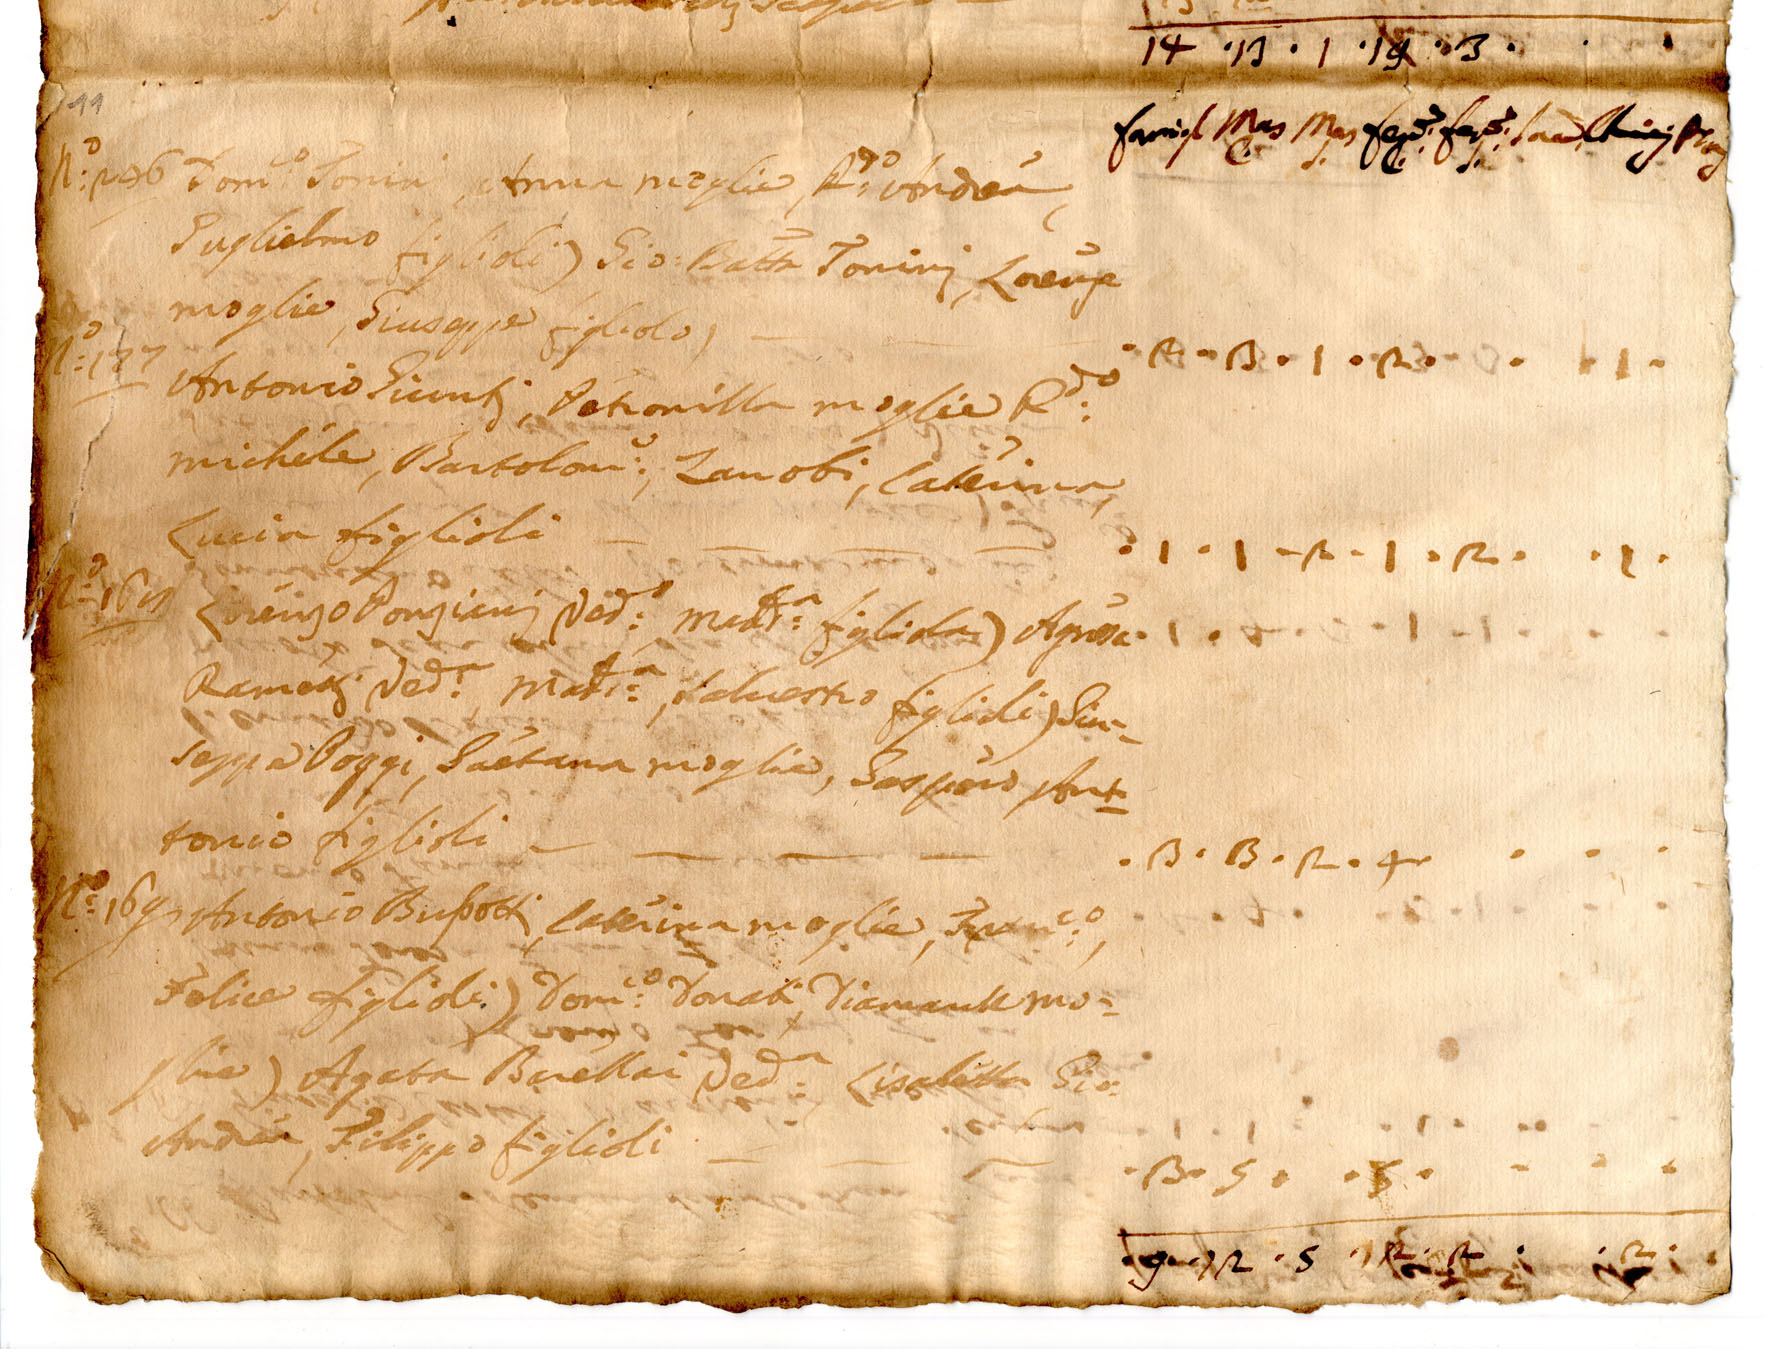 14 · 13 · 1 · 19 · 3 ·
99
famigl Mas Mas fem: fem:
C. S. C. S.
Dom:co Tonini, Anna moglie, R:do Andrea,
Guglielmo figlioli) Gio: Batta Tonini, Lorenza
moglie, Giuseppe figliolo)
· 2 · 3 · 1 · 2 · · 1 ·
N:o 177
Antonio Giunti, Petronilla moglie R:do
michele, Bartolom:o, Zanobi, Caterina
Lucia figlioli
· 1 · 1 · 2 · 1 · 2 · · 1 ·
Lorenzo Ponziani Ved:o, Madd:a figliola) Agnesa
Ved:a, Madd:a, Salvestro figlioli) Giu=
seppe Poggi, Gaetana moglie, Gaspero, Ant=
tonio figlioli
· 3 · 3 · 2 · 4 ·
N:o 169
Antonio Bussotti, Caterina moglie, Fran:co,
Felice figlioli) Dom:co Donati, Diamante mo=
glie) Agata Ved:a, Lisabetta Gio:
Andrea, Filippo figlioli
· 3 · 5 ·
· 9 · 12 · 5